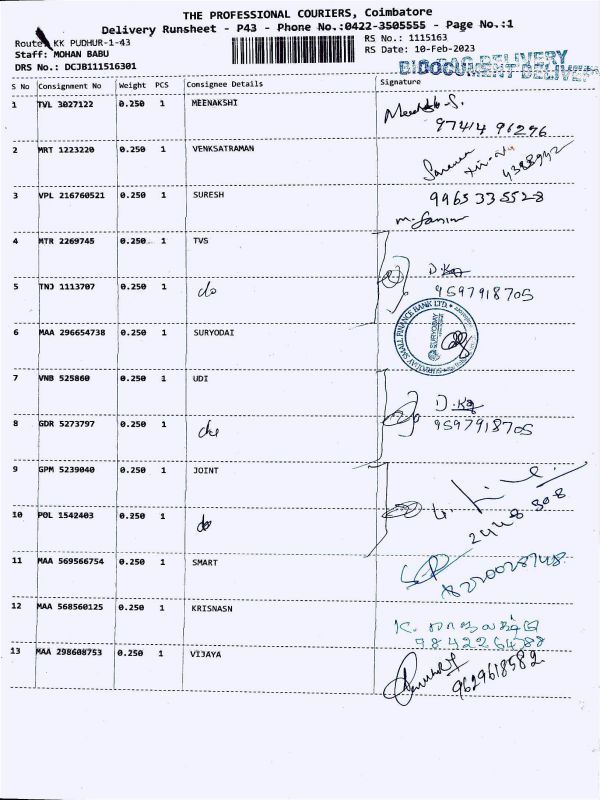 THE PROFESSIONAL COURIERS, Coimbatore
Delivery Runsheet - P43 - Phone No.:0422-3505555 - Page No.:1
Route: KK PUDHUR-1-43
RS No.: 1115163
Staff: MOHAN BABU
RS Date: 10-Feb-2023
DRS No.: DCJB111516301
DOCUMENT DELIVERY
S No Consignment No Weight PCS Consignee Details Signature
1 TVL 3027122 0.250 1 MEENAKSHI
97414 96296
2 MRT 1223220 0.250 1 VENKSATRAMAN
3 VPL 216760521 0.250 1 SURESH 9965335528
4 MTR 2269745 0.250 1 TVS
5 TNJ 1113707 0.250 1 do 9597918705
6 MAA 296654738 0.250 1 SURYODAI
SURYODAY SMALL FINANCE BANK LTD.
SURYODAY
7 VNB 525860 0.250 1 UDI
8 GDR 5273797 0.250 1 9597918705
9 GPM 5239040 0.250 1 JOINT
10 POL 1542403 0.250 1 do 2448 808
11 MAA 569566754 0.250 1 SMART
8220028748
12 MAA 568560125 0.250 1 KRISNASN
9842264788
13 MAA 298608753 0.250 1 VIJAYA
9629618582